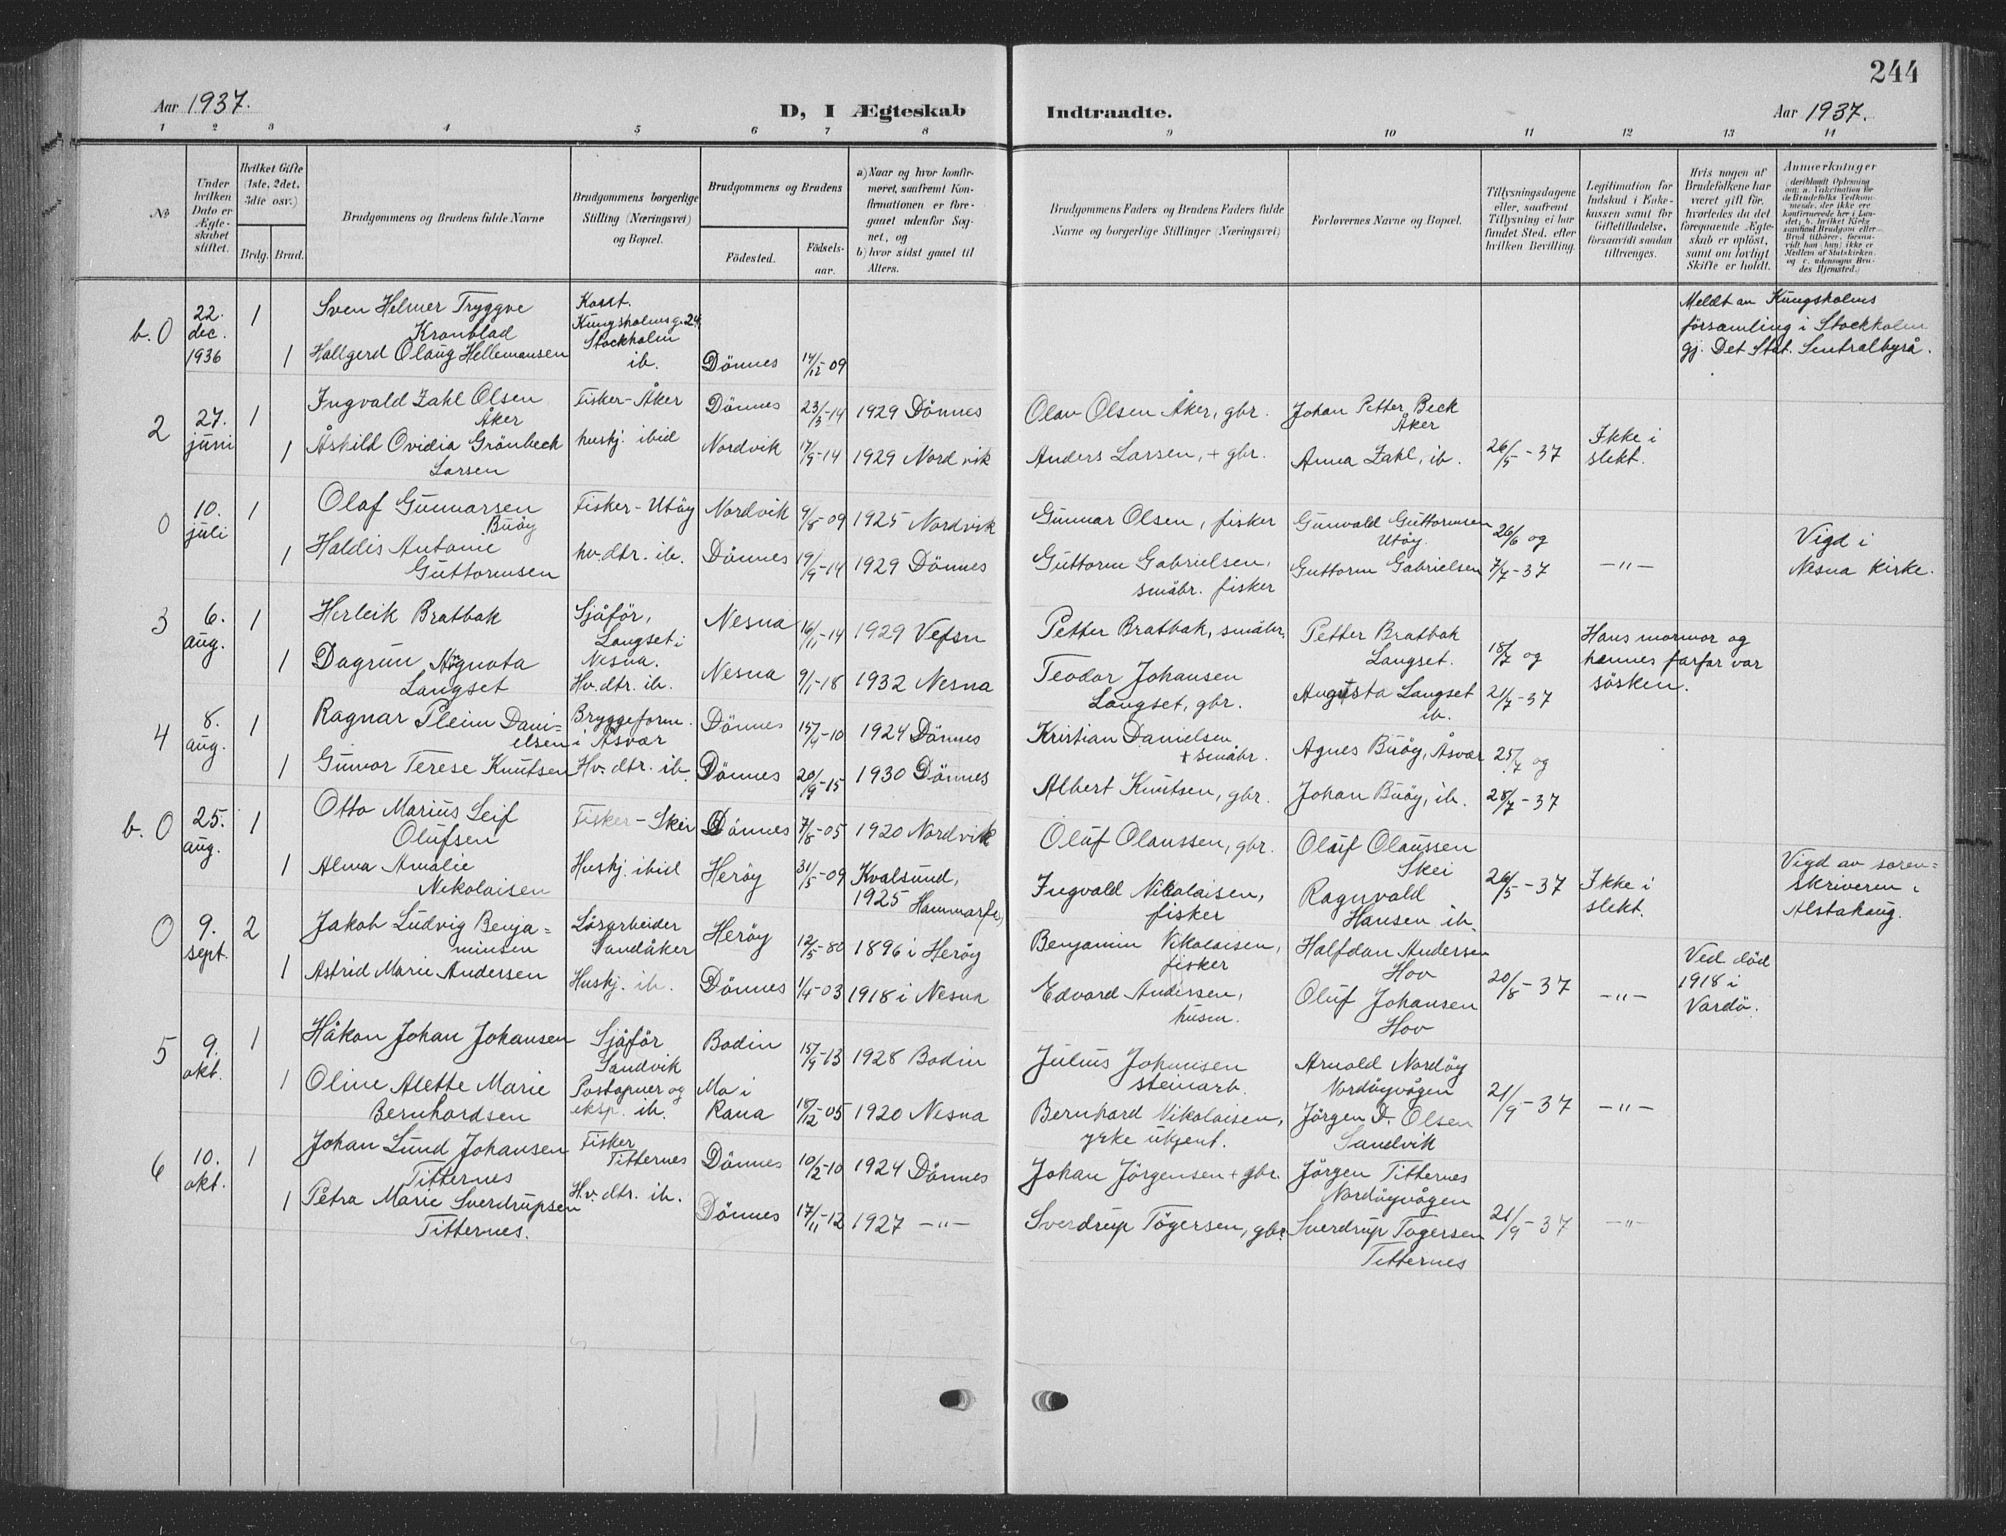 244
Aar 1937.
D, I Ægteskab
Indtraadte.
Aar 1937.
1 2 3 4 5 6 7 8 9 10 11 12 13 14
No
Under hvilken Dato er Ægteskabet stiftet.
Hvilket Gifte (1ste, 2det, 3die osv.)
Brdg. Brud.
Brudgommens og Brudens fulde Navne
Brudgommens borgerlige Stilling (Næringsvei) og Bopæl.
Brudgommens og Brudens
Födested.
Födselsaar.
a) Naar og hvor konfirmeret, saafremt Konfirmationen er foregaaet udenfor Sognet, og
b) hvor sidst gaaet til Alters.
Brudgommens Faders og Brudens Faders fulde Navne og borgerlige Stillinger (Næringsvei)
Forlovernes Navne og Bopæl.
Tillysningsdagene eller, saafremt Tillysning ei har fundet Sted, efter hvilken Bevilling.
Legitimation for Indskud i Enkekassen samt for Giftetilladelse, forsaavidt saadan tiltrænges.
Hvis nogen af Brudefolkene har været gift før, hvorledes da det foregaaende Ægteskab er oplöst, samt om lovligt Skifte er holdt.
Anmærkninger
b. 0 22. dec. 1936 1 Sven Helmer Tryggve Kronblad
Kungsholmsg. 24, Stockholm
Meldt av Kungsholms församling i Stockholm gj. Det Stat. Sentralbyrå.
1 Hallgerd Olaug Hellemansen ib. Dönnes 14/12-09
2 27. juni 1 Ingvald Zahl Olsen Åker Fisker-Åker Dönnes 23/3-14 1929 Dönnes Olav Olsen Åker, gbr. Johan Petter Beck Åker
1 Åshild Ovidia Grönbech Larsen huskj. ibid Nordvik 17/9-14 1929 Nordvik Anders Larsen, + gbr. Anna Zahl, ib. 26/5-37 Ikke i slekt.
0 10. juli 1 Olaf Gunnarsen Buöy Fisker-Utöy Nordvik 9/8-09 1925 Nordvik Gunnar Olsen, fisker Gunvald Guttormsen Utöy. 26/6 og
1 Haldis Antonie Guttormsen hv.dtr. ib. Dönnes 19/9-14 1929 Dönnes Guttorm Gabrielsen, småbr. fisker Guttorm Gabrielsen 7/7-37 -"- Vigd i Nesna kirke.
3 6. aug. 1 Herleik Bratbak Sjåför, Langset i Nesna. Nesna 16/11-14 1929 Vefsn Petter Bratbak, småbr. Petter Bratbak Langset. 18/7 og Hans mormor og hennes farfar var søsken.
1 Dagrun Langset Hv.dtr. ib. Nesna 9/1-18 1932 Nesna Teodor Johansen Langset, gbr. Augusta Langset ib. 21/7-37
4 8. aug. 1 Ragnar Pleim Danielsen Bryggeform. i Åsvær Dönnes 15/9-10 1924 Dönnes Kristian Danielsen + småbr. Agnes Buöy, Åsvær 25/7 og
1 Gunvor Terese Knutsen Hv.dtr. ib. Dönnes 20/9-15 1930 Dönnes Albert Knutsen, gbr. Johan Buöy, ib. 28/7-37
b. 0 25. aug. 1 Otto Marius Leif Olufsen Fisker-Skei Dönnes 7/8-05 1920 Nordvik Oluf Olaussen, gbr. Oluf Olaussen Skei
1 Alma Amalie Nikolaisen Huskj. ibid Heröy 31/5-09 Kvalsund, 1925 Hammerf. Ingvald Nikolaisen, fisker Ragnvald Hansen ib. 26/5-37 Ikke i slekt. Vigd av sorenskriveren i Alstahaug.
0 9. sept. 2 Jakob Ludvig Benjaminsen Lösarbeider Sandåker Heröy 12/5-80 1896 i Heröy Benjamin Nikolaisen, fisker Halfdan Andersen Hov Ved död 1918 i Vardö.
1 Astrid Marie Andersen Huskj. ib. Dönnes 1/4-03 1918 i Nesna Edvard Andersen, husm. Oluf Johansen Hov 20/8-37 -"-
5 9. okt. 1 Håkon Johan Johansen Sjåför Sandvik Bodin 15/9-13 1928 Bodin Julius Johansen steinarb. Arnold Nordöy Nordöyvågen
1 Oline Alette Marie Bernhardsen Poståpner og eksp. ib. Mo i Rana 18/12-05 1920 Nesna Bernhard Nikolaisen, yrke ukjent. Jörgen D. Olsen Sandvik 21/9-37 -"-
6 10. okt. 1 Johan Lund Johansen Titternes Fisker Titternes Dönnes 10/2-10 1924 Dönnes Johan Jörgensen + gbr. Jörgen Titternes Nordöyvågen
1 Petra Marie Sverdrupsen Titternes. Hv.dtr. ib. Dönnes 17/11-12 1927 -"- Sverdrup Tögersen, gbr. Sverdrup Togersen Titternes 21/9-37 -"-